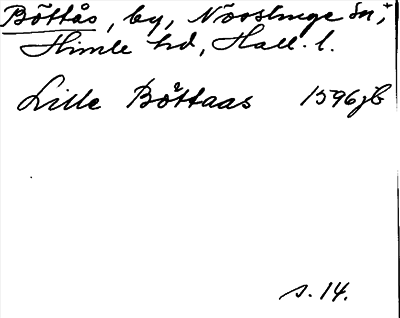 Böttås, by, Nösslinge sn,
Himle hd, Hall. l.
Lille Bøttaas 1596 jb
s. 14.